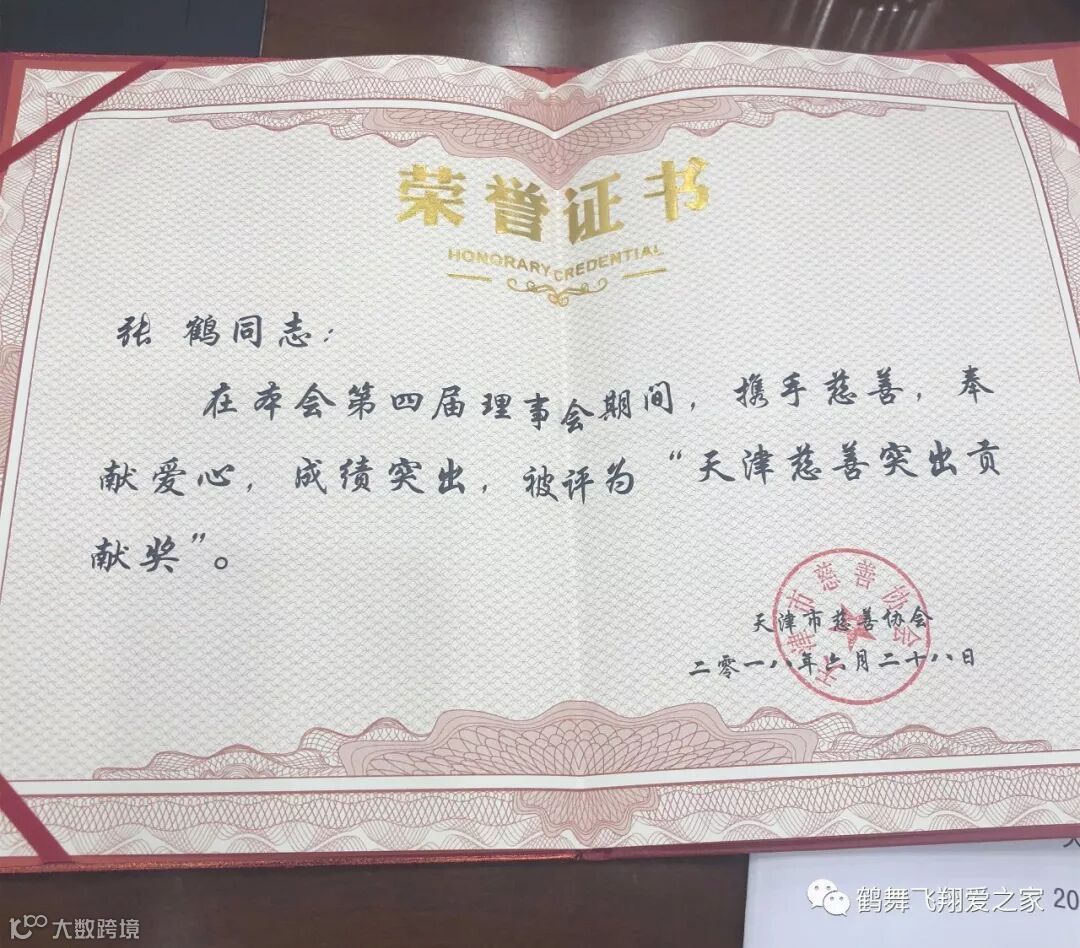 荣誉证书
HONORARY CREDENTIAL
张 鹤同志：
在本会第四届理事会期间，携手慈善，奉
献爱心，成绩突出，被评为“天津慈善突出贡
献奖”。
天津市慈善协会
天津市慈善协会
二零一八年六月二十八日
鹤舞飞翔爱之家
20
大数跨境